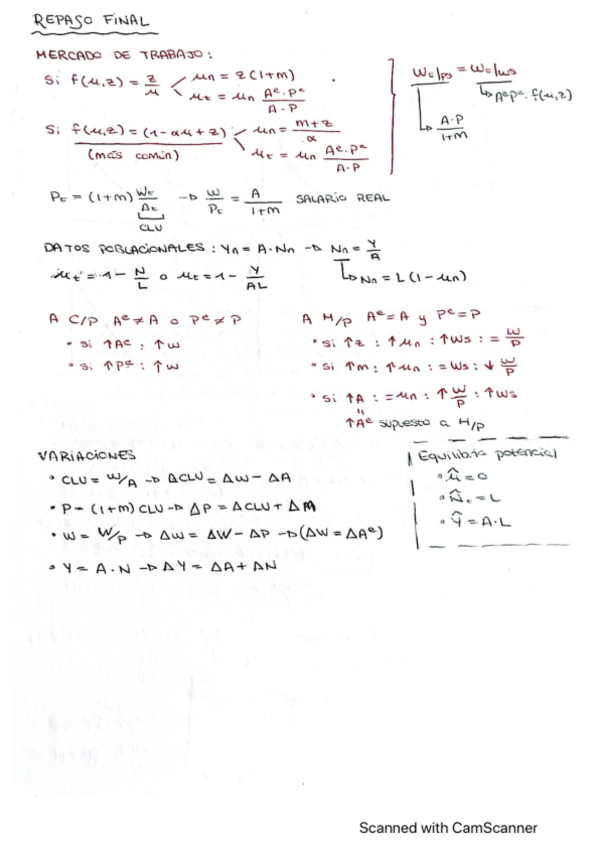 REPASO FINAL
MERCADO DE TRABAJO:
Si f(μ,z) = z/μ
μn = z(1+m)
μt = μn Aᵉ·Pᵉ/A·P
Si f(μ,z) = (1-αμ+z)
(más común)
μn = m+z/α
μt = μn Aᵉ·Pᵉ/A·P
Wt/ps = Wt/ws
A·P/1+m
AᵉPᵉ·f(μ,z)
Pt = (1+m) Wt/At → W/Pt = A/1+m SALARIO REAL
CLU
DATOS POBLACIONALES: Yn = A·Nn → Nn = Y/A
μt = 1 - N/L o μt = 1 - Y/AL
Nn = L(1-μn)
A C/P Aᵉ≠A o Pᵉ≠P
• Si ↑Aᵉ : ↑W
• Si ↑Pᵉ : ↑W
A M/p Aᵉ=A y Pᵉ=P
• si ↑z : ↑μn : ↑Ws : = W/P
• si ↑m : ↑μn : =Ws : ↓ W/P
• si ↑A : =μn : ↑ W/P : ↑Ws
"
↑Aᵉ supuesto a M/p
VARIACIONES
• CLU = W/A → ΔCLU = ΔW - ΔA
• P = (1+m) CLU → ΔP = ΔCLU + ΔM
• W = W/P → ΔW = ΔW - ΔP → (ΔW = ΔAᵉ)
• Y = A·N → ΔY = ΔA + ΔN
Equilibrio potencial
• μ̂ = 0
• N̂t = L
• Ŷ = A·L
Scanned with CamScanner